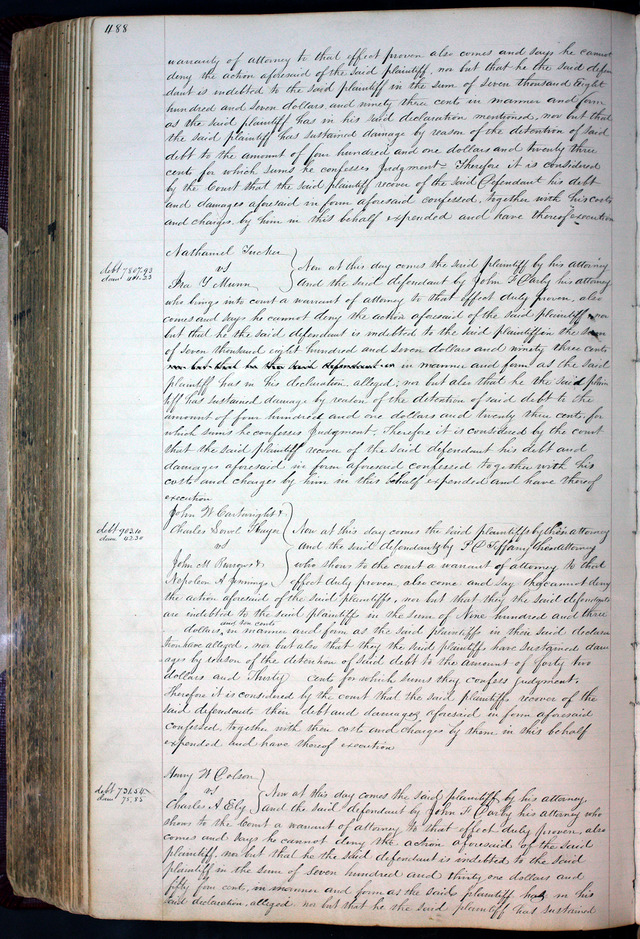 488
warranty of attorney to that effect proven also comes and says he cannot
deny the action aforesaid of the said plaintiff, nor but that he the said defen
dant is indebted to the said plaintiff in the sum of Seven thousand Eight
hundred and seven dollars and ninety three cents in manner and form
as the said plaintiff has in his said declaration mentioned, nor but that
the said plaintiff has sustained damage by reason of the detention of said
debt to the amount of four hundred and one dollars and twenty three
cents for which sums he confesses Judgment = Therefore it is considered
by the Court that the said plaintiff recover of the said Defendant his debt
and damages aforesaid in form aforesaid confessed, together with his costs
and charges by him in this behalf expended and have thereof execution
Nathaniel Tucker
vs
Ira Y Munn
debt 7807.93
dam 401.23
Now at this day comes the said plaintiff by his attorney
and the said defendant by John F Darby his attorney
who brings into court a warrant of attorney to that effect duly proven, also
comes and says he cannot deny the action aforesaid of the said plaintiff nor
but that he the said defendant is indebted to the said plaintiff in the sum
of seven thousand eight hundred and seven dollars and ninety three cents
nor but that he the said defendant is in manner and form as the said
plaintiff has in his declaration alleged; nor but also that he the said plain
tiff has sustained damage by reason of the detention of said debt to the
amount of four hundred and one dollars and twenty three cents, for
which sums he confesses Judgment. Therefore it is considered by the court
that the said plaintiff recover of the said defendant his debt and
damages aforesaid in form aforesaid confessed together with his
costs and charges by him in this behalf expended and have thereof
execution
John W Cartwright &
Charles Thayer
vs
John M Burrows &
Napoleon A Jennings
debt 903.10
dam 42.30
Now at this day comes the said plaintiffs by their attorney
and the said defendants by P C Tiffany their attorney
who shows to the court a warrant of attorney to that
effect duly proven, also come and say they cannot deny
the action aforesaid of the said plaintiffs, nor but that they the said defendants
are indebted to the said plaintiffs in the sum of Nine hundred and three
dollars, and ten cents in manner and form as the said plaintiffs in their said declara
tion have alleged, nor but also that they the said plaintiffs have sustained dam
ages by reason of the detention of said debt to the amount of forty two
dollars and thirty cents for which sums they confess judgment.
Therefore it is considered by the court that the said plaintiffs recover of the
said defendants their debt and damages, aforesaid in form aforesaid
confessed, together with their costs and charges by them in this behalf
expended and have thereof execution
Henry W Colson
vs
Charles A Ely
debt 731.54
dam 75.85
Now at this day comes the said plaintiff by his attorney,
and the said defendant by John F Darby his attorney who
shows to the Court a warrant of attorney to that effect duly proven, also
comes and says he cannot deny the action aforesaid of the said
plaintiff, nor but that he the said defendant is indebted to the said
plaintiff in the sum of Seven hundred and thirty one dollars and
fifty four cents, in manner and form as the said plaintiff has in his
said declaration, alleged. nor but that he the said plaintiff has sustained